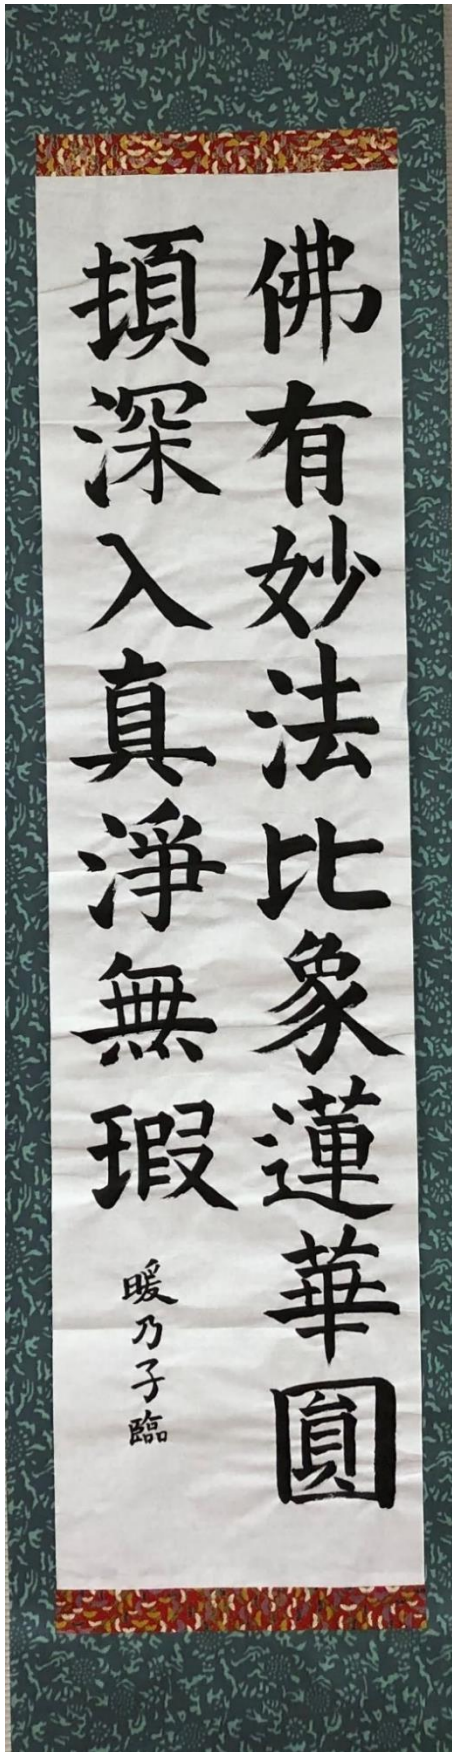 佛有妙法比象蓮華圓
頓深入真淨無瑕
暖乃子臨